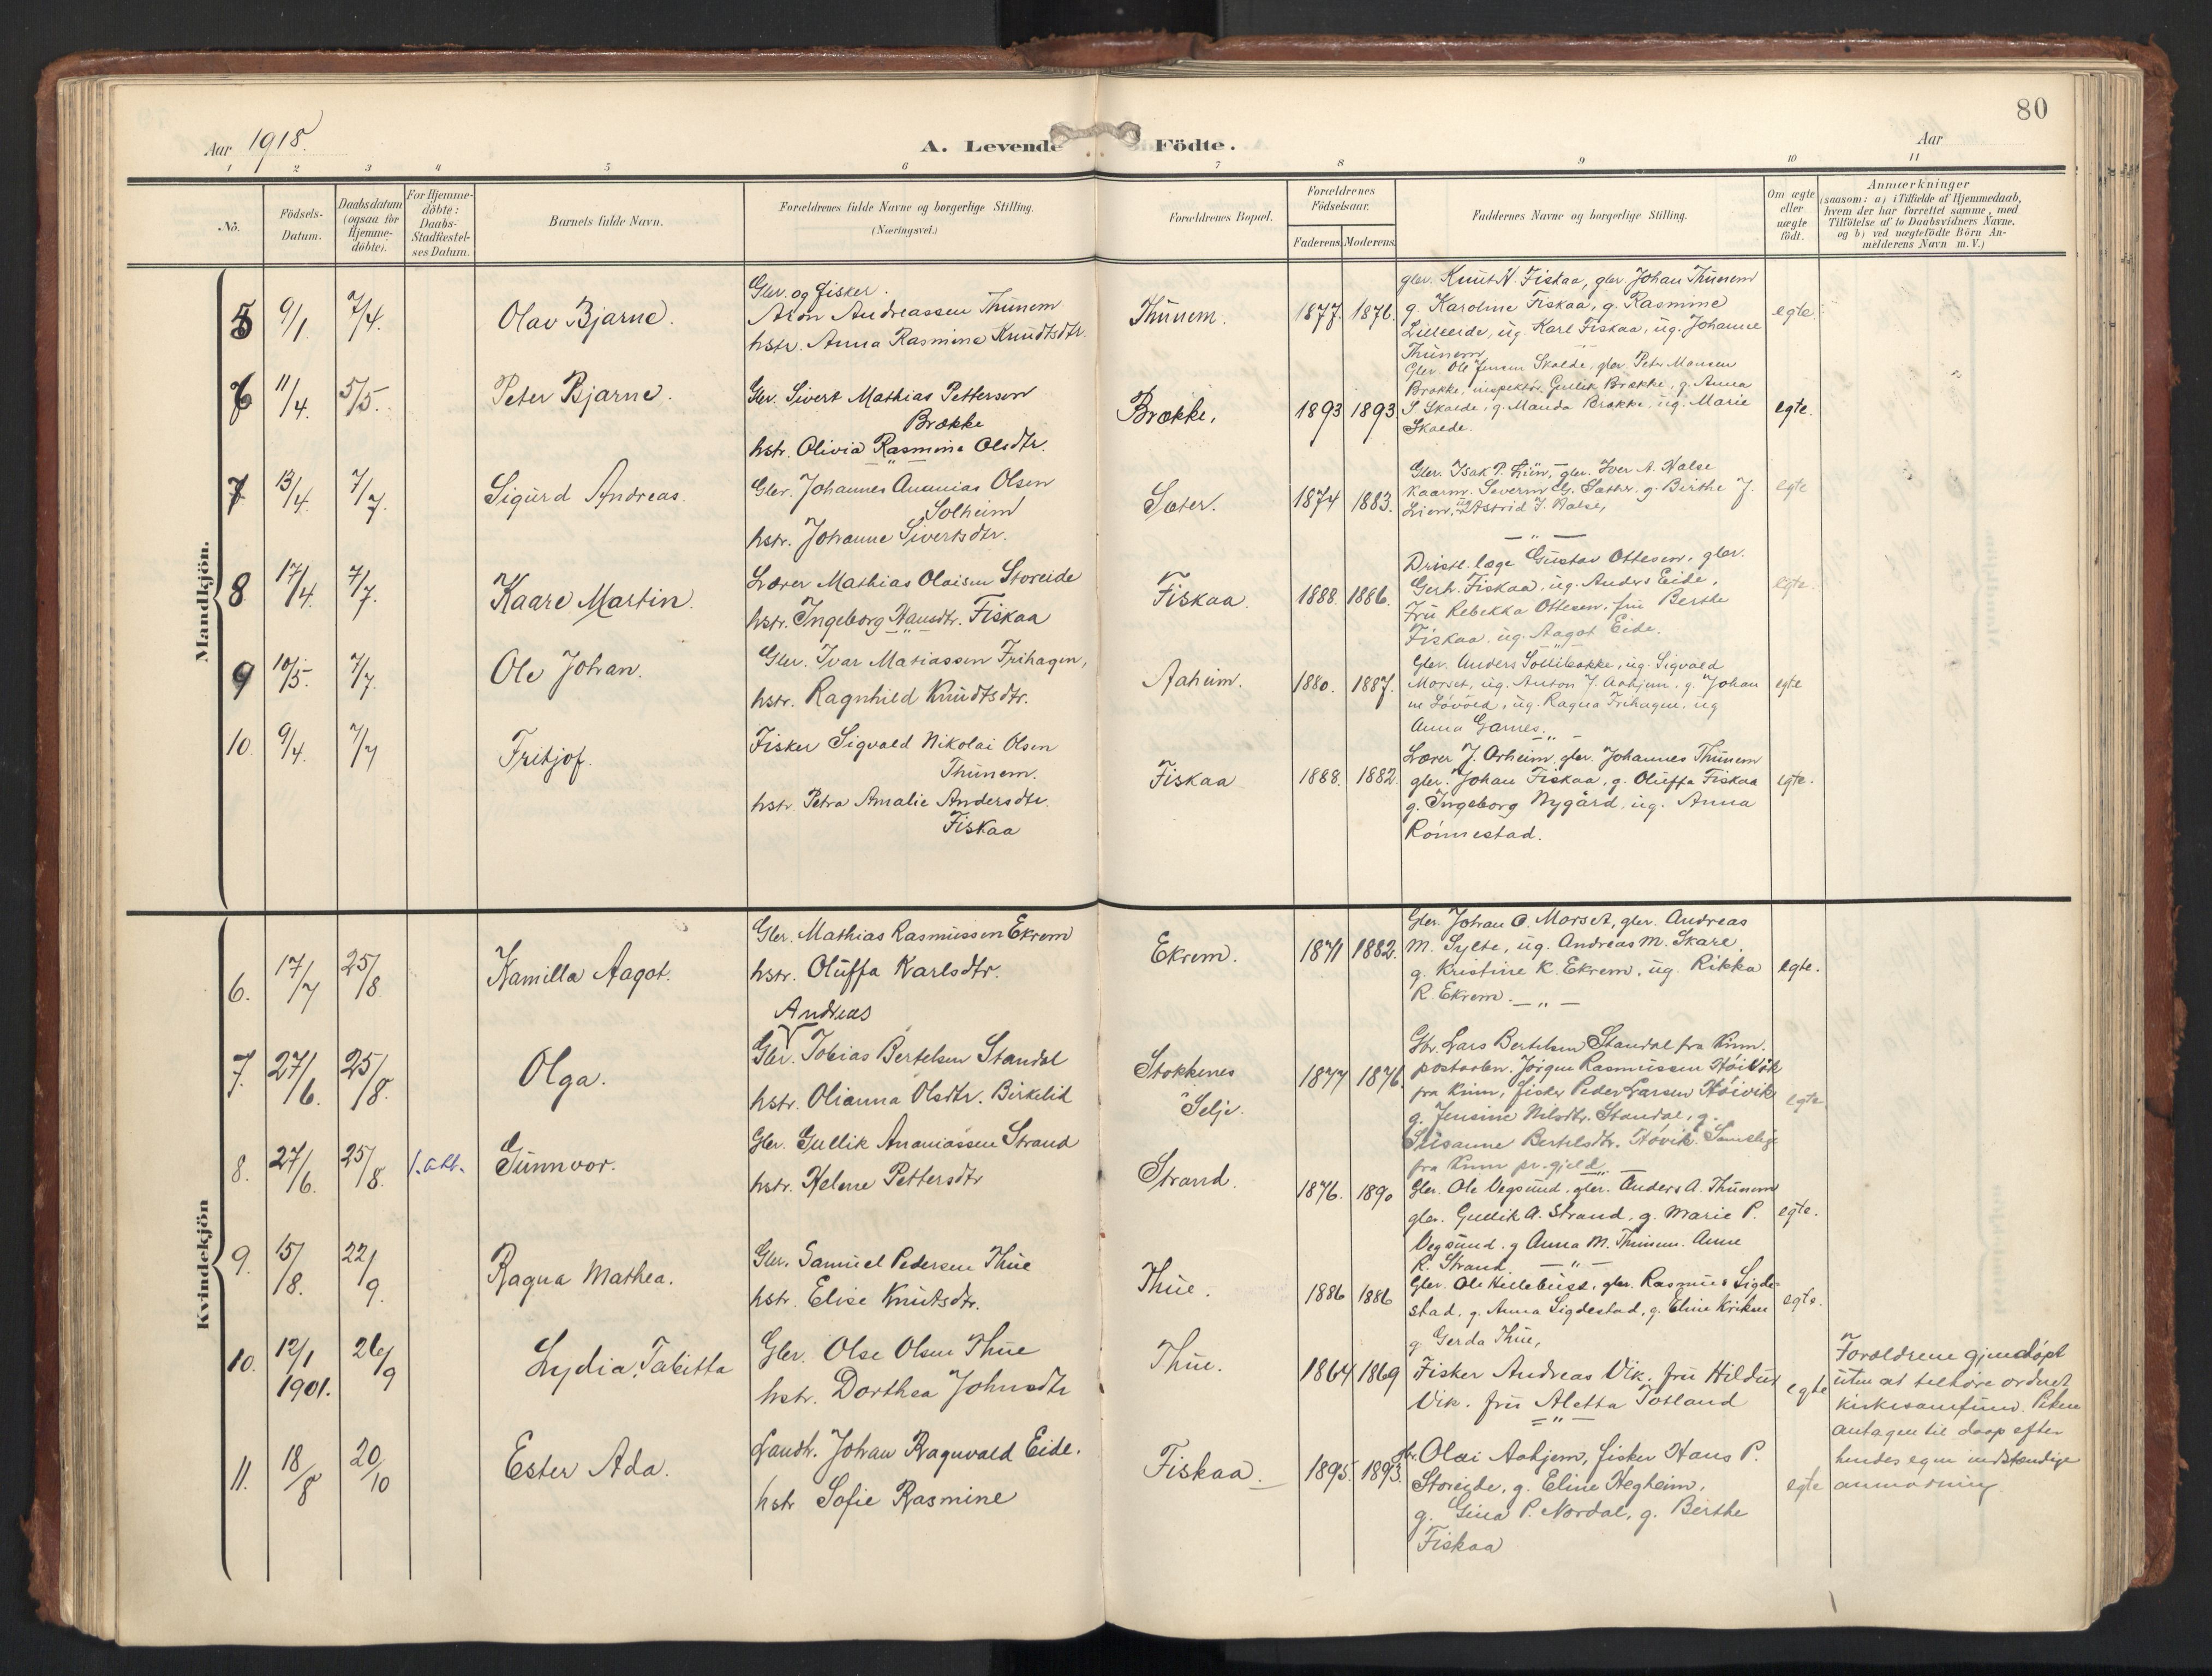 80
Aar 1918.
A. Levende Födte.
Aar
1 2 3 4 5 6 7 8 9 10 11
No.
Födsels-
Datum.
Daabsdatum
(ogsaa for
Hjemme-
döbte).
For Hjemme-
döbte:
Daabs-
Stadfæstel-
ses Datum.
Barnets fulde Navn.
Forældrenes fulde Navne og borgerlige Stilling.
(Næringsvei.)
Forældrenes Bopæl.
Forældrenes
Födselsaar.
Faderens. Moderens.
Faddernes Navne og borgerlige Stilling.
Om ægte
eller
uægte
födt.
Anmærkninger
(saasom: a) i Tilfælde af Hjemmedaab,
hvem der har forrettet samme, med
Tilföielse af to Daabsvidners Navne.
og b) ved uægtefödte Börn An-
melderens Navn m. V.)
Mandkjön.
5 9/1 7/4. Olav Bjarne.
Gbr. og fisker.
Aron Andreassen Thunem
hstr. Anna Rasmine Knudtsdtr.
Thunem. 1877. 1876.
gbr. Knut H. Fiskaa, gbr Johan Thunem
g. Karoline Fiskaa, g. Rasmine
Lilleeide, ug. Karl Fiskaa, ug. Johanne
Thunem
egte.
6 11/4. 5/5. Peter Bjarne.
Gbr. Sivert Mathias Pettersen
Brække
hstr. Olivia Rasmine Olsdtr.
Brække. 1893 1893
Gbr. Ole Jensen Skaide, gbr Peter Monsen
Brække, inspektör Gullik Brække, g. Anna
S Skaide, g. Manda Brække, ug. Marie
Skaide.
egte.
7 13/4. 7/7. Sigurd Andreas.
Gbr. Johannes Ananias Olsen
Solheim
hstr. Johanne Sivertsdtr.
Sæter. 1874 1883.
Gbr. Isak P. Lien, gbr. Iver A. Halse
Kaarm. Severin G. Sæther. g. Birthe J.
Lien, ug Astrid J. Halse,
egte
8 17/4. 7/7. Kaare Martin.
Lærer Mathias Olaisen Storeide
hstr. Ingeborg Hansdtr. Fiskaa
Fiskaa. 1888. 1886.
Distr. læge Gustav Ottesen, gbr.
Gerh. Fiskaa, ug. Anders Eide,
Fru Rebekka Ottesen, fru Berthe
Fiskaa, ug. Aagot Eide.
egte.
9 10/5. 7/7. Ole Johan.
Gbr. Ivar Matiassen Frihagen,
hstr. Ragnhild Knudtsdtr.
Aaheim. 1880. 1887.
Gbr. Anders Sollibakke, ug. Sigvald
Morset, ug. Anton J. Aahjem, g. Johan
ne Lövold, ug. Ragna Frihagen, ug
Anna Garnes.
egte
10. 9/4. 7/7 Fritjof.
Fisker Sigvald Nikolai Olsen
Thunem.
hstr. Petra Amalie Andersdtr.
Fiskaa
Fiskaa 1888. 1882.
Lærer J. Arheim, gbr. Johannes Thunem
gbr. Johan Fiskaa, g. Oluffa Fiskaa
g. Ingeborg Nygård, ug. Anna
Rönnestad.
egte.
Kvindekjön
6. 17/7 25/8. Kamilla Aagot.
Gbr. Mathias Rasmussen Ekrem
hstr. Oluffa Karlsdtr.
Ekrem. 1871 1882.
Gbr. Johan O. Morset, gbr. Andreas
M. Sylte, ug. Andreas M. Skare,
g. Kristine K. Ekrem, ug. Rikka
R. Ekrem. — „ —
egte.
7. 27/6. 25/8. Olga.
Andreas
Gbr. Tobias Bertelsen Standal
hstr. Olianna Olsdtr. Birkelid
Stokkenes
Selje. 1877 1876.
Gbr. Lars Bertelsen Standal fra Kinn.
postaabn. Jörgen Rasmussen Höivik
fra Kinn, fisker Peder Larsen Höivik
g. Jensine Nilsdtr. Standal, g.
Susanne Bertelsdtr. Hövik. Samtlige
fra Kinn pr.gjeld
egte.
8. 27/6. 25/8. Gunnvor.
Gbr. Gullik Ananiassen Strand
hstr. Helene Pettersdtr
Strand. 1876. 1890
Gbr. Ole Vegsund, gbr. Anders A. Thunem
gbr. Gullik A. Strand, g. Marie P.
Vegsund. g Anna M. Thunem. Anne
R. Strand. — „ —
egte.
9. 15/8. 22/9. Ragna Mathea.
Gbr. Samuel Pedersen Thue
hstr. Elise Knutsdtr.
Thue. 1886 1886
Gbr. Ole Hellebust, gbr. Rasmus Sigde-
stad, g. Anna Sigdestad, g. Eline Kriken
g. Gerda Thue,
egte.
10. 12/1 1901. 26/9 Lydia Tabitta
Gbr. Olse Olsen Thue
hstr. Dorthea Johnsdtr
Thue. 1864 1869
Fisker Andreas Vik. fru Hildur
Vik. fru Aletta Totland
egte
Forældrene gjendöpt
uten at tilhöre ordnet
kirkesamfund. Piken
antagen til daap efter
hendes egen indstændige
anmodning.
11. 18/8 20/10 Ester Ada.
Landh. Johan Ragnvald Eide.
hstr Sofie Rasmine
Fiskaa. 1895. 1893.
gbr. Olai Aahjem, fisker Hans P.
Storeide, g. Eline Hegheim,
g. Gina P. Nordal, g. Berthe
Fiskaa
egte